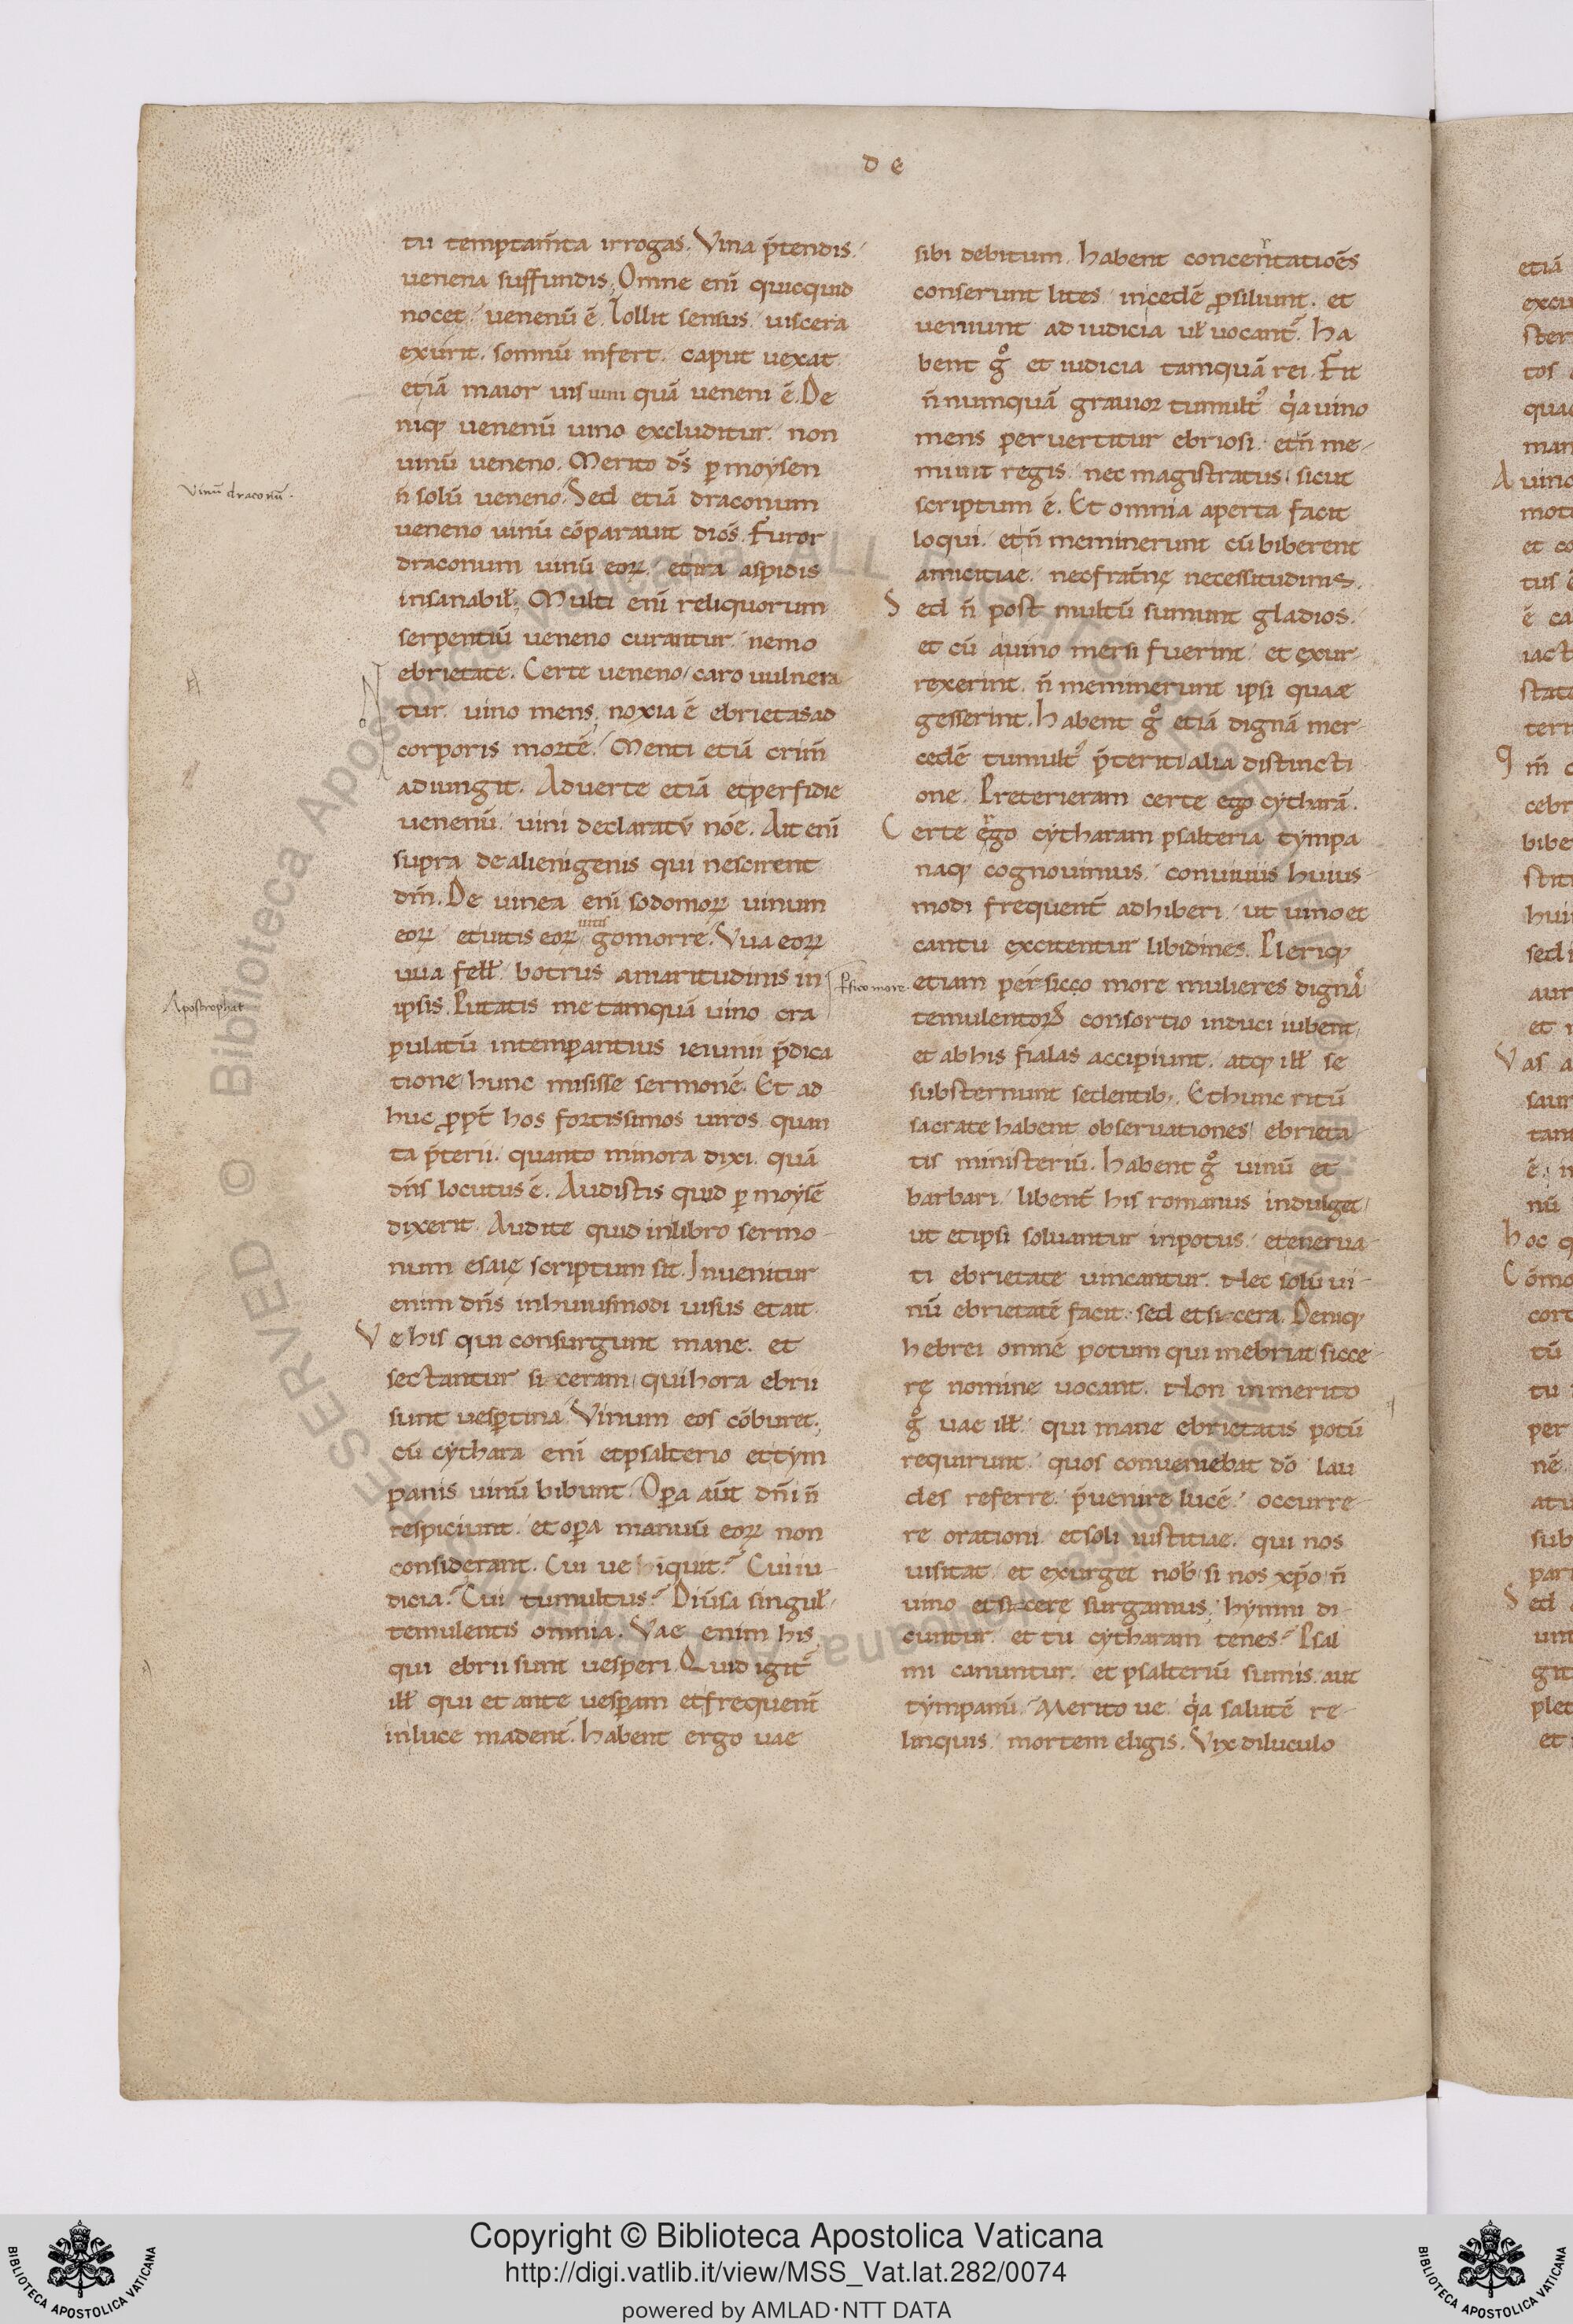 d e
tu temptam̄ta irrogas. Vina p̄tendis.
uenena suffundis. Omne eni̅ quicquid
nocet. uenenū ē. Tollit sensus. uiscera
exurit. somnū infert. caput uexat.
etiā maior uis uini quā ueneni ē. De
niq; uenenū uino excluditur. non
uinū ueneno. Merito dŝ p̱ moysen
n̄ solū ueneno. Sed etiā draconum
ueneno uinū cōparauit dicēs. Furor
draconum uinū eoꝝ. et ira aspidis
insanabił. Multi eni̅ reliquorum
serpentiū ueneno curantur. nemo
ebrietate. Certe ueneno caro uulnera
tur. uino mens. noxia ē ebrietas ad
corporis mortē. Menti etiā crim̄
adiungit. Aduerte etiā et perfidie
uenenū. uini declaratū nōe. Ait eni̅
supra de alienigenis qui nescirent
dm̄. De uinea eni̅ sodomoꝝ uinum
eoꝝ et uitis eoꝝ gomorre. Vua eoꝝ
uitis
uua fełł. botrus amaritudinis in
ipsis. Putatis me tamquā uino cra
pulatū intemp̱antius ieiunii p̄dica
tione hunc misisse sermonē. Et ad
huc ꝓpt̄ hos fortissimos uiros quan
ta p̄terii. quanto minora dixi. quā
dn̄s locutus ē. Audistis quid p̱ moysē
dixerit. Audite quid in libro sermo
num esaię scriptum sit. Inuenitur
enim dn̄s in huiusmodi uisus et ait.
Ve his qui consurgunt mane. et
sectantur siceram. qui hora ebrii
sunt uesp̱tina. Vinum eos cōburet.
cū cythara eni̅ et psalterio et tym
panis uinū bibunt. Op̱a aūt dn̄i n̄
respiciunt. et op̱a manuū eoꝝ non
considerant. Cui ue iquit? Cui iu
dicia? Cui tumultus? Diūsa singuł
temulentis omnia. Vae enim his
qui ebrii sunt uesperi. Quid igit̄
iłł qui et ante uesp̱am et frequent̄
in luce madent. Habent ergo uae
sibi debitum. habent concertatioēs
conserunt lites. incedē ꝓsiliunt. et
ueniunt ad iudicia uł uocant̄. Ha
bent gͦ et iudicia tamquā rei. Fit
n̄ numquā grauior tumult᷒ q̇a uino
mens peruertitur ebriosi. et n̄ me
minit regis. nec magistratus. sicut
scriptum ē. Et omnia aperta facit
loqui. et n̄ meminerunt cū biberent
amicitiae. nec frat̄nę necessitudinis.
Sed n̄ post multū sumunt gladios.
et cū a uino mersi fuerint. et exur
rexerint. n̄ meminerunt ipsi quae
gesserint. Habent gͦ etiā dignā mer
cedē tumult᷒ p̄teriti alia distincti
one. Preterieram certe ego cytharā.
Certe ergo cytharam psalteria tympa
naq; cognouimus. conuiuiis huius
modi frequent̄ adhiberi. ut uino et
cantu excitentur libidines. Pleriq;
etiam persicco more mulieres dignā
temulentoꝝ consortio induci iubent
et ab his fialas accipiunt. atq; iłł se
substernunt sedentib;. Et hunc ritū
sacrate habent obseruationes ebrieta
tis ministeriū. Habent gͦ uinū et
barbari. libent̄ his romanus indulget
ut et ipsi soluantur in potus. et enerua
ti ebrietate uincantur. Nec solū ui
nū ebrietatē facit. sed et sicera. Deniq;
hebrei omnē potum qui inebriat sicce
rę nomine uocant. Non inmerito
gͦ uae iłł. qui mane ebrietatis potū
requirunt. quos conueniebat dō lau
des referre. p̄uenire lucē. occurre
re orationi. et soli iustitiae. qui nos
uisitat. et exurget nob̄ si nos xp̄o n̄
uino et sicerę surgamus. hymni di
cuntur. et tu cytharam tenes? Psal
mi canuntur. et psalteriū sumis aut
tympanū. Merito ue. q̇a salutē re
linquis. mortem eligis. Vix diluculo
Vinū draconū.
Apostrophat
Psico more
Copyright © Biblioteca Apostolica Vaticana
http://digi.vatlib.it/view/MSS_Vat.lat.282/0074
powered by AMLAD·NTT DATA
BIBLIOTECA APOSTOLICA VATICANA
BIBLIOTECA APOSTOLICA VATICANA